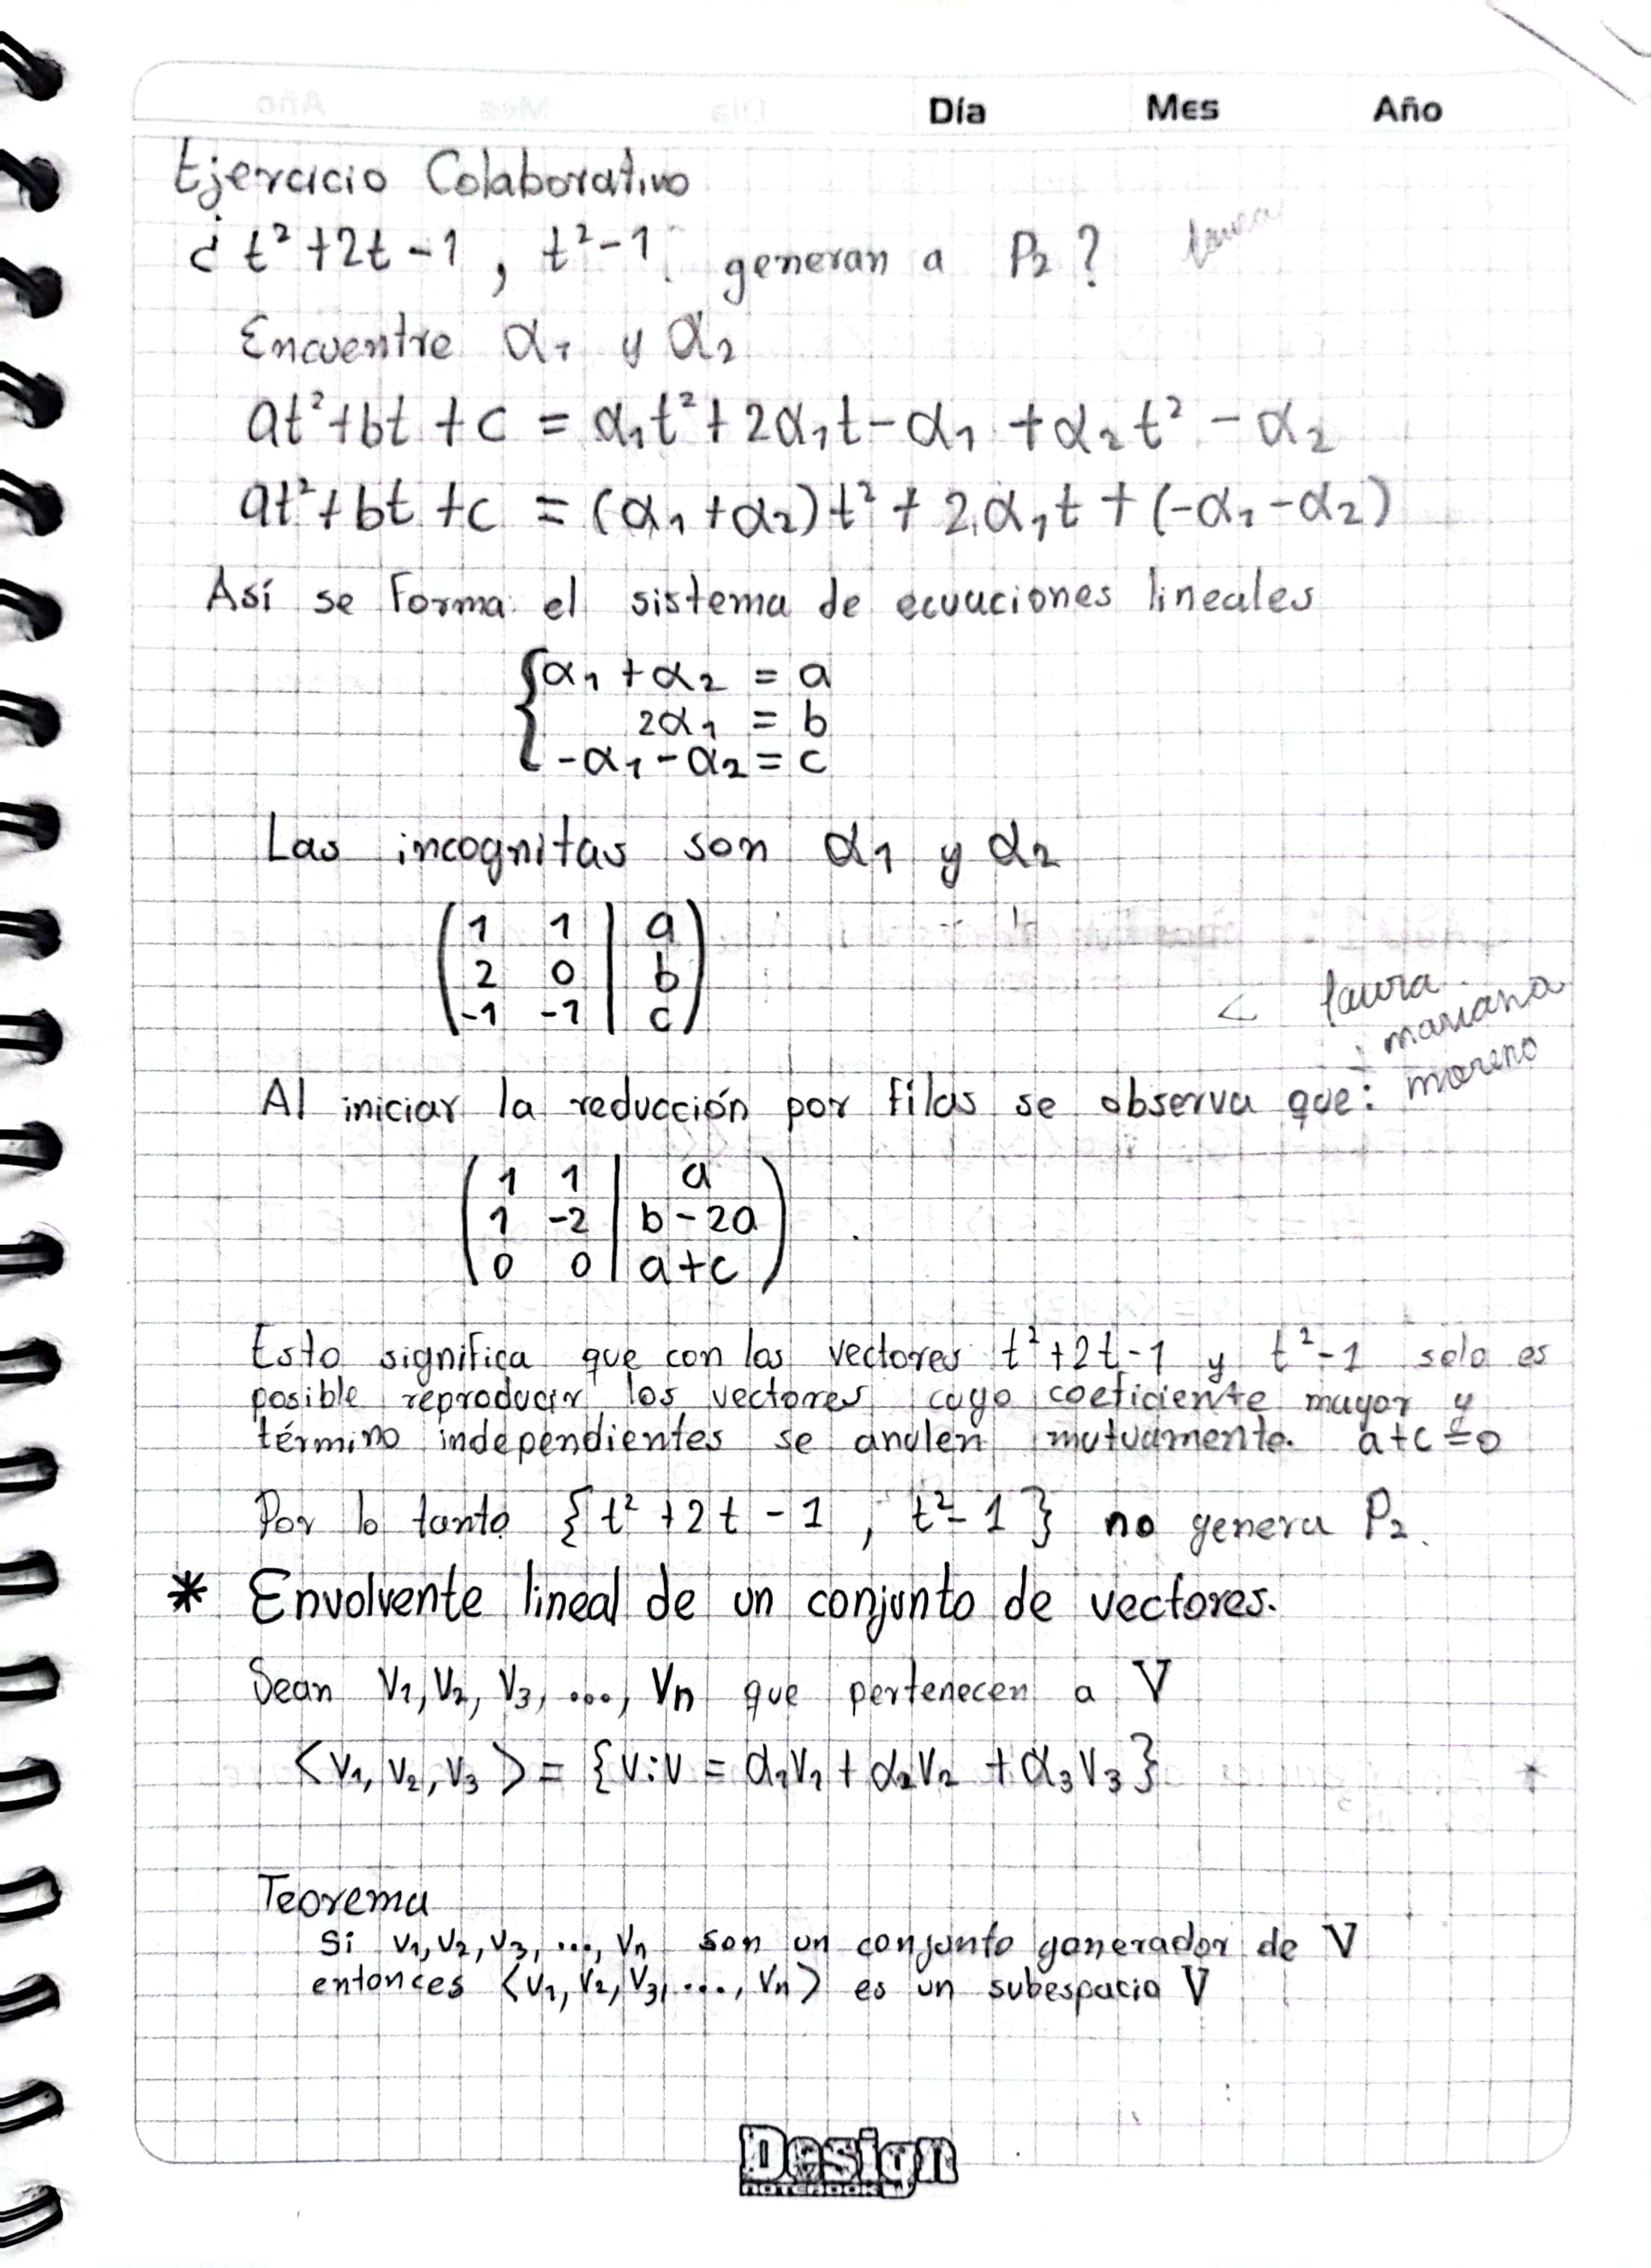 Día Mes Año
Ejercicio Colaborativo
¿ t² + 2t - 1 , t² - 1 generan a P₂ ?
Encuentre α₁ y α₂
at² + bt + c = α₁t² + 2α₁t - α₁ + α₂t² - α₂
at² + bt + c = (α₁ + α₂)t² + 2α₁t + (-α₁ - α₂)
Así se Forma el sistema de ecuaciones lineales
{ α₁ + α₂ = a
2α₁ = b
-α₁ - α₂ = c
Las incognitas son α₁ y α₂
( 1 1 | a )
( 2 0 | b )
( -1 -1 | c )
< laura
mariana
moreno
Al iniciar la reducción por filas se observa que:
( 1 1 | a )
( 1 -2 | b - 2a )
( 0 0 | a + c )
Esto significa que con los vectores t² + 2t - 1 y t² - 1 solo es
posible reproducir los vectores cuyo coeficiente mayor y
término independientes se anulen mutuamente. a + c = 0
Por lo tanto { t² + 2t - 1 , t² - 1 } no genera P₂.
* Envolvente lineal de un conjunto de vectores.
Sean V₁, V₂, V₃, ..., Vn que pertenecen a V
<V₁, V₂, V₃> = {V : V = α₁V₁ + α₂V₂ + α₃V₃}
Teorema
Si V₁, V₂, V₃, ..., Vn son un conjunto generador de V
entonces <V₁, V₂, V₃, ..., Vn> es un subespacio V
Design
NOTEBOOK